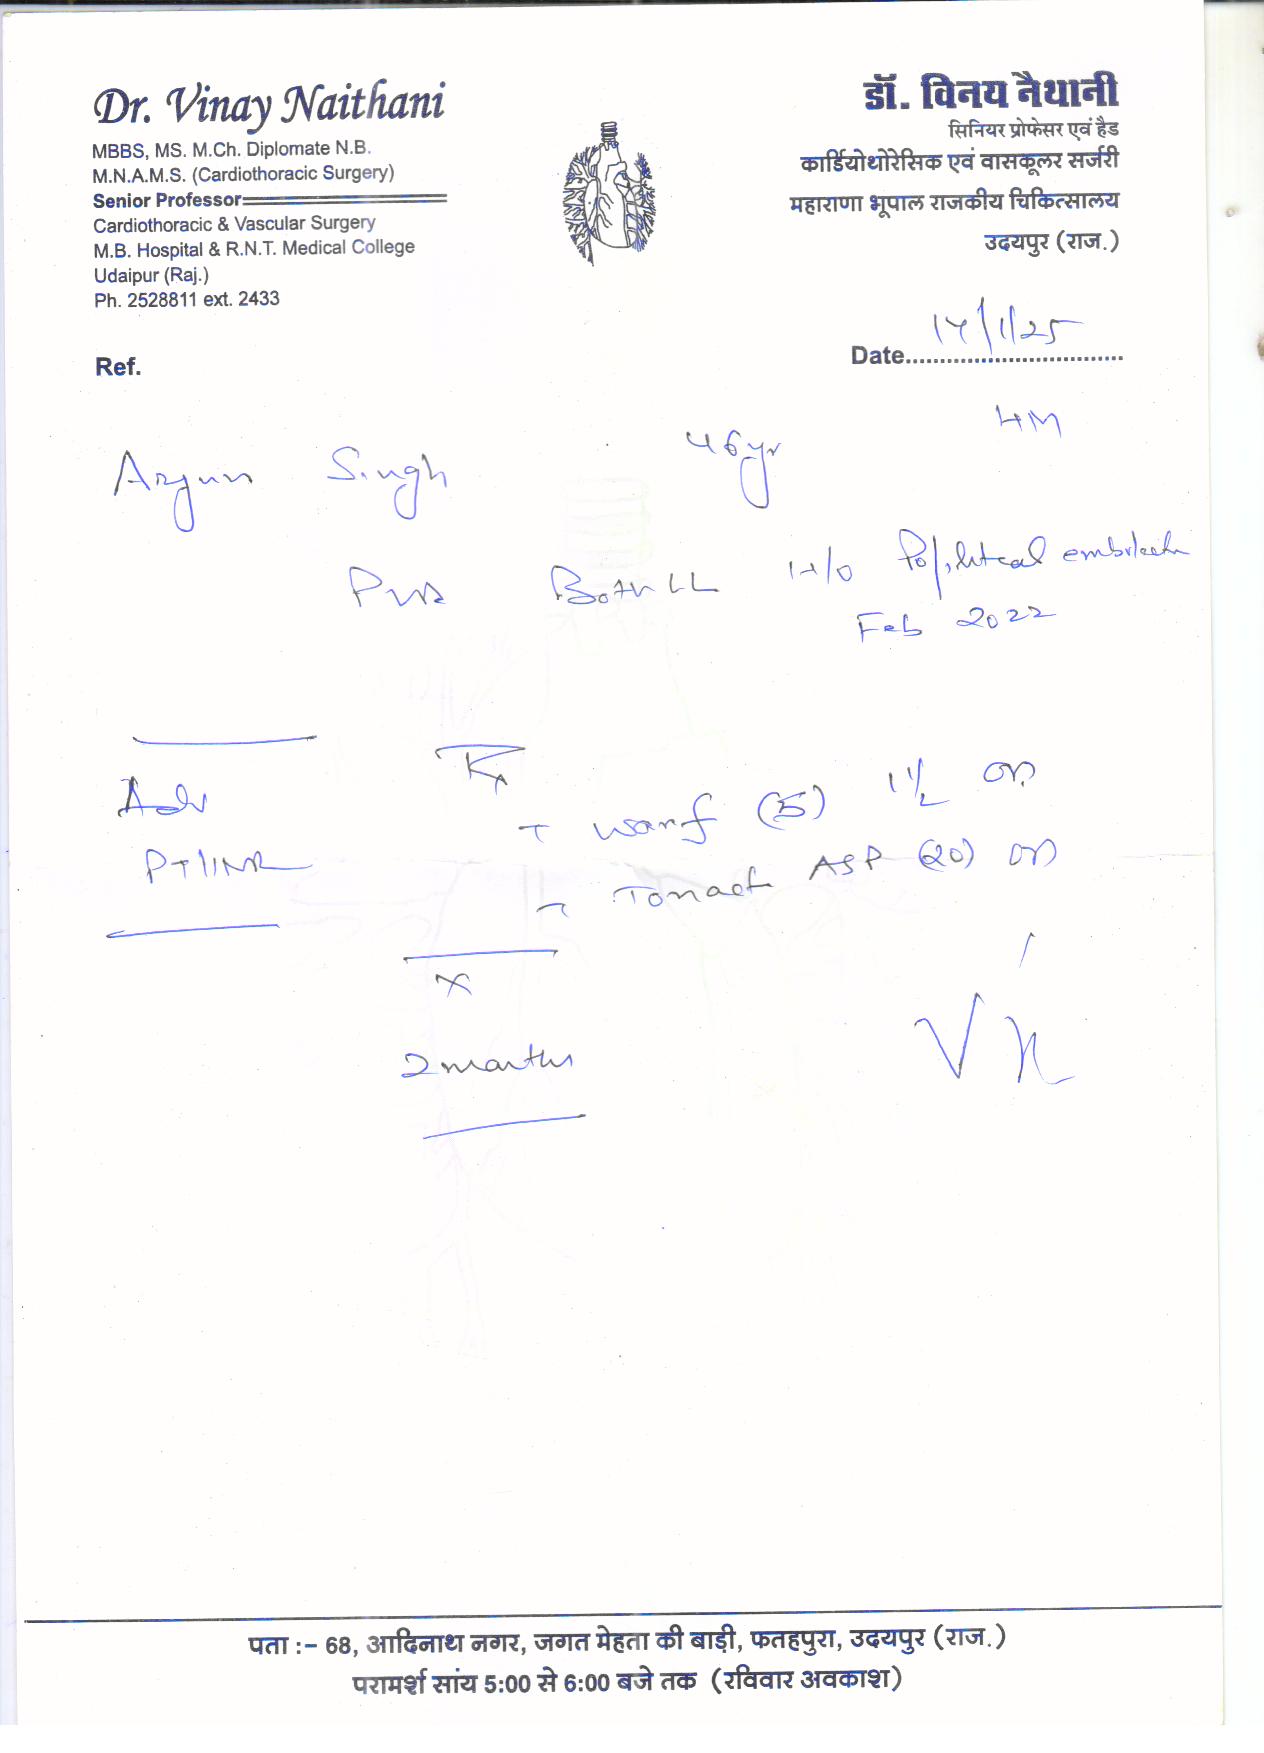 Dr. Vinay Naithani
MBBS, MS. M.Ch. Diplomate N.B.
M.N.A.M.S. (Cardiothoracic Surgery)
Senior Professor
Cardiothoracic & Vascular Surgery
M.B. Hospital & R.N.T. Medical College
Udaipur (Raj.)
Ph. 2528811 ext. 2433
डॉ. विनय नैथानी
सिनियर प्रोफेसर एवं हैड
कार्डियोथोरेसिक एवं वासकूलर सर्जरी
महाराणा भूपाल राजकीय चिकित्सालय
उदयपुर (राज.)
Ref.
Date 14/1/25
Arjun Singh 46yr
Both LL H/o Popliteal
Feb 2022
Adv
PT/INR
T Warf (5) 1 1/2 OD
T ASP (20) OD
x
2 months
पता :- 68, आदिनाथ नगर, जगत मेहता की बाड़ी, फतहपुरा, उदयपुर (राज.)
परामर्श सांय 5:00 से 6:00 बजे तक (रविवार अवकाश)